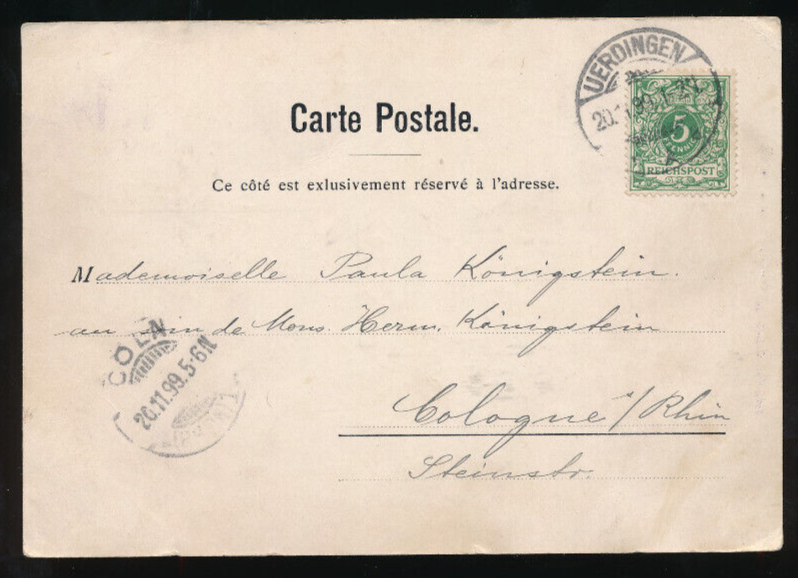 UERDINGEN
20.11.99.
5
PFENNIG
REICHSPOST
Carte Postale.
Ce côté est exlusivement réservé à l'adresse.
Mademoiselle Paula Königstein.
au soin de Mons. Herm. Königstein
Cologne a/Rhin
Steinstr.
CÖLN
20.11.99.5-6N